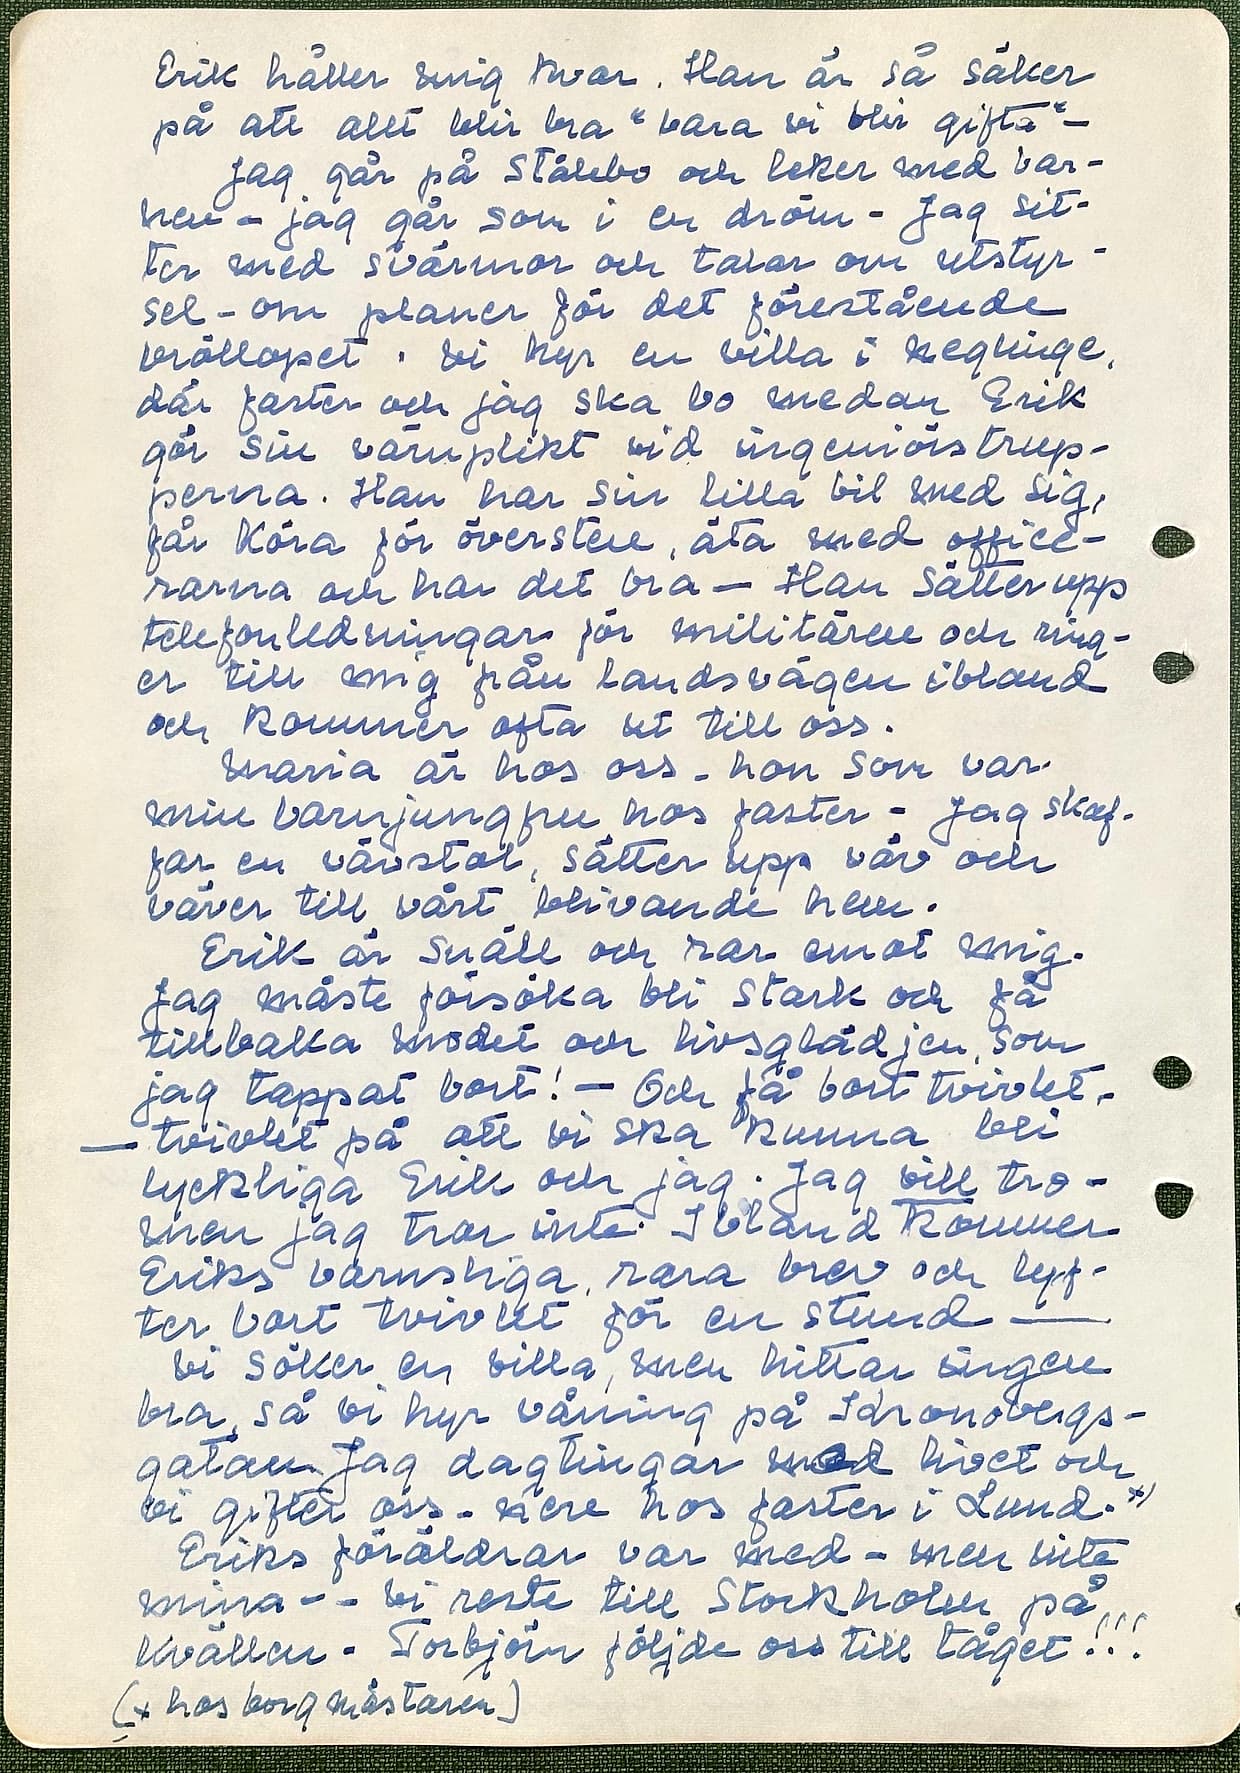 Erik håller mig kvar. Han är så säker
på att allt blir bra "bara vi blir gifta" -
Jag går på Stålebo och leker med bar-
nen - jag går som i en dröm - Jag sit-
ter med svärmor och talar om utstyr-
sel - om planer för det förestående
bröllopet. Vi hyr en villa i Neglinge,
där faster och jag ska bo medan Erik
gör sin värnplikt vid ingeniörstrup-
perna. Han har sin lilla bil med sig,
får köra för översten, äta med office-
rarna och har det bra — Han sätter upp
telefonledningar för militären och ring-
er till mig från landsvägen ibland
och kommer ofta ut till oss.
Maria är hos oss - hon som var
min barnjungfru hos faster - Jag skaf-
far en vävstol, sätter upp väv och
väver till vårt blivande hem.
Erik är snäll och rar emot mig.
Jag måste försöka bli stark och få
tillbaka modet och livsglädjen, som
jag tappat bort! — Och få bort tvivlet,
— tvivlet på att vi ska kunna bli
lyckliga Erik och jag. Jag vill tro -
men jag tror inte. Ibland kommer
Eriks varmsliga, rara brev och lyf-
ter bort tvivlet för en stund —
Vi söker en villa, men hittar ingen
bra, så vi hyr våning på Idrottsbergs-
gatan. Jag dagtingar med livet och
vi gifter oss - nere hos faster i Lund. x)
Eriks föräldrar var med - men inte
mina - - Vi reste till Stockholm på
kvällen - Torbjörn följde oss till tåget!!!
(x hos borgmästaren)